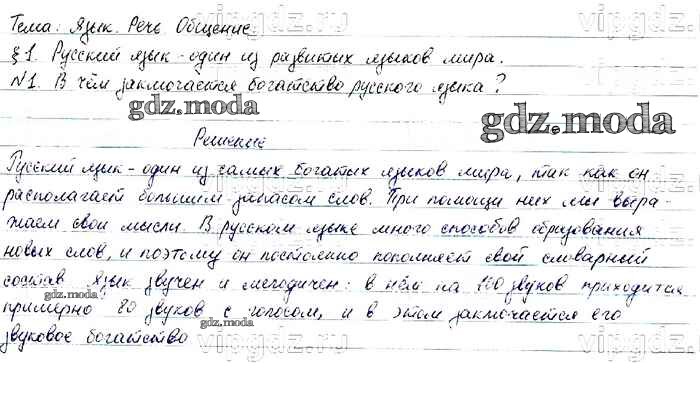 Тема: Язык. Речь. Общение.
§1. Русский язык - один из развитых языков мира.
N1. В чём заключается богатство русского языка?
gdz.moda
gdz.moda
Решение
Русский язык - один из самых богатых языков мира, так как он
располагает большим запасом слов. При помощи них мы выра-
жаем свои мысли. В русском языке много способов образования
новых слов, и поэтому он постоянно пополняет свой словарный
состав. Язык звучен и мелодичен: в нём на 100 звуков приходится
gdz.moda
примерно 80 звуков с голосом, и в этом заключается его
gdz.moda
звуковое богатство
gdz.moda
vipgdz.ru
vipgdz.ru
vipgdz.ru
vipgdz.ru
vipgdz.ru
vipgdz.ru